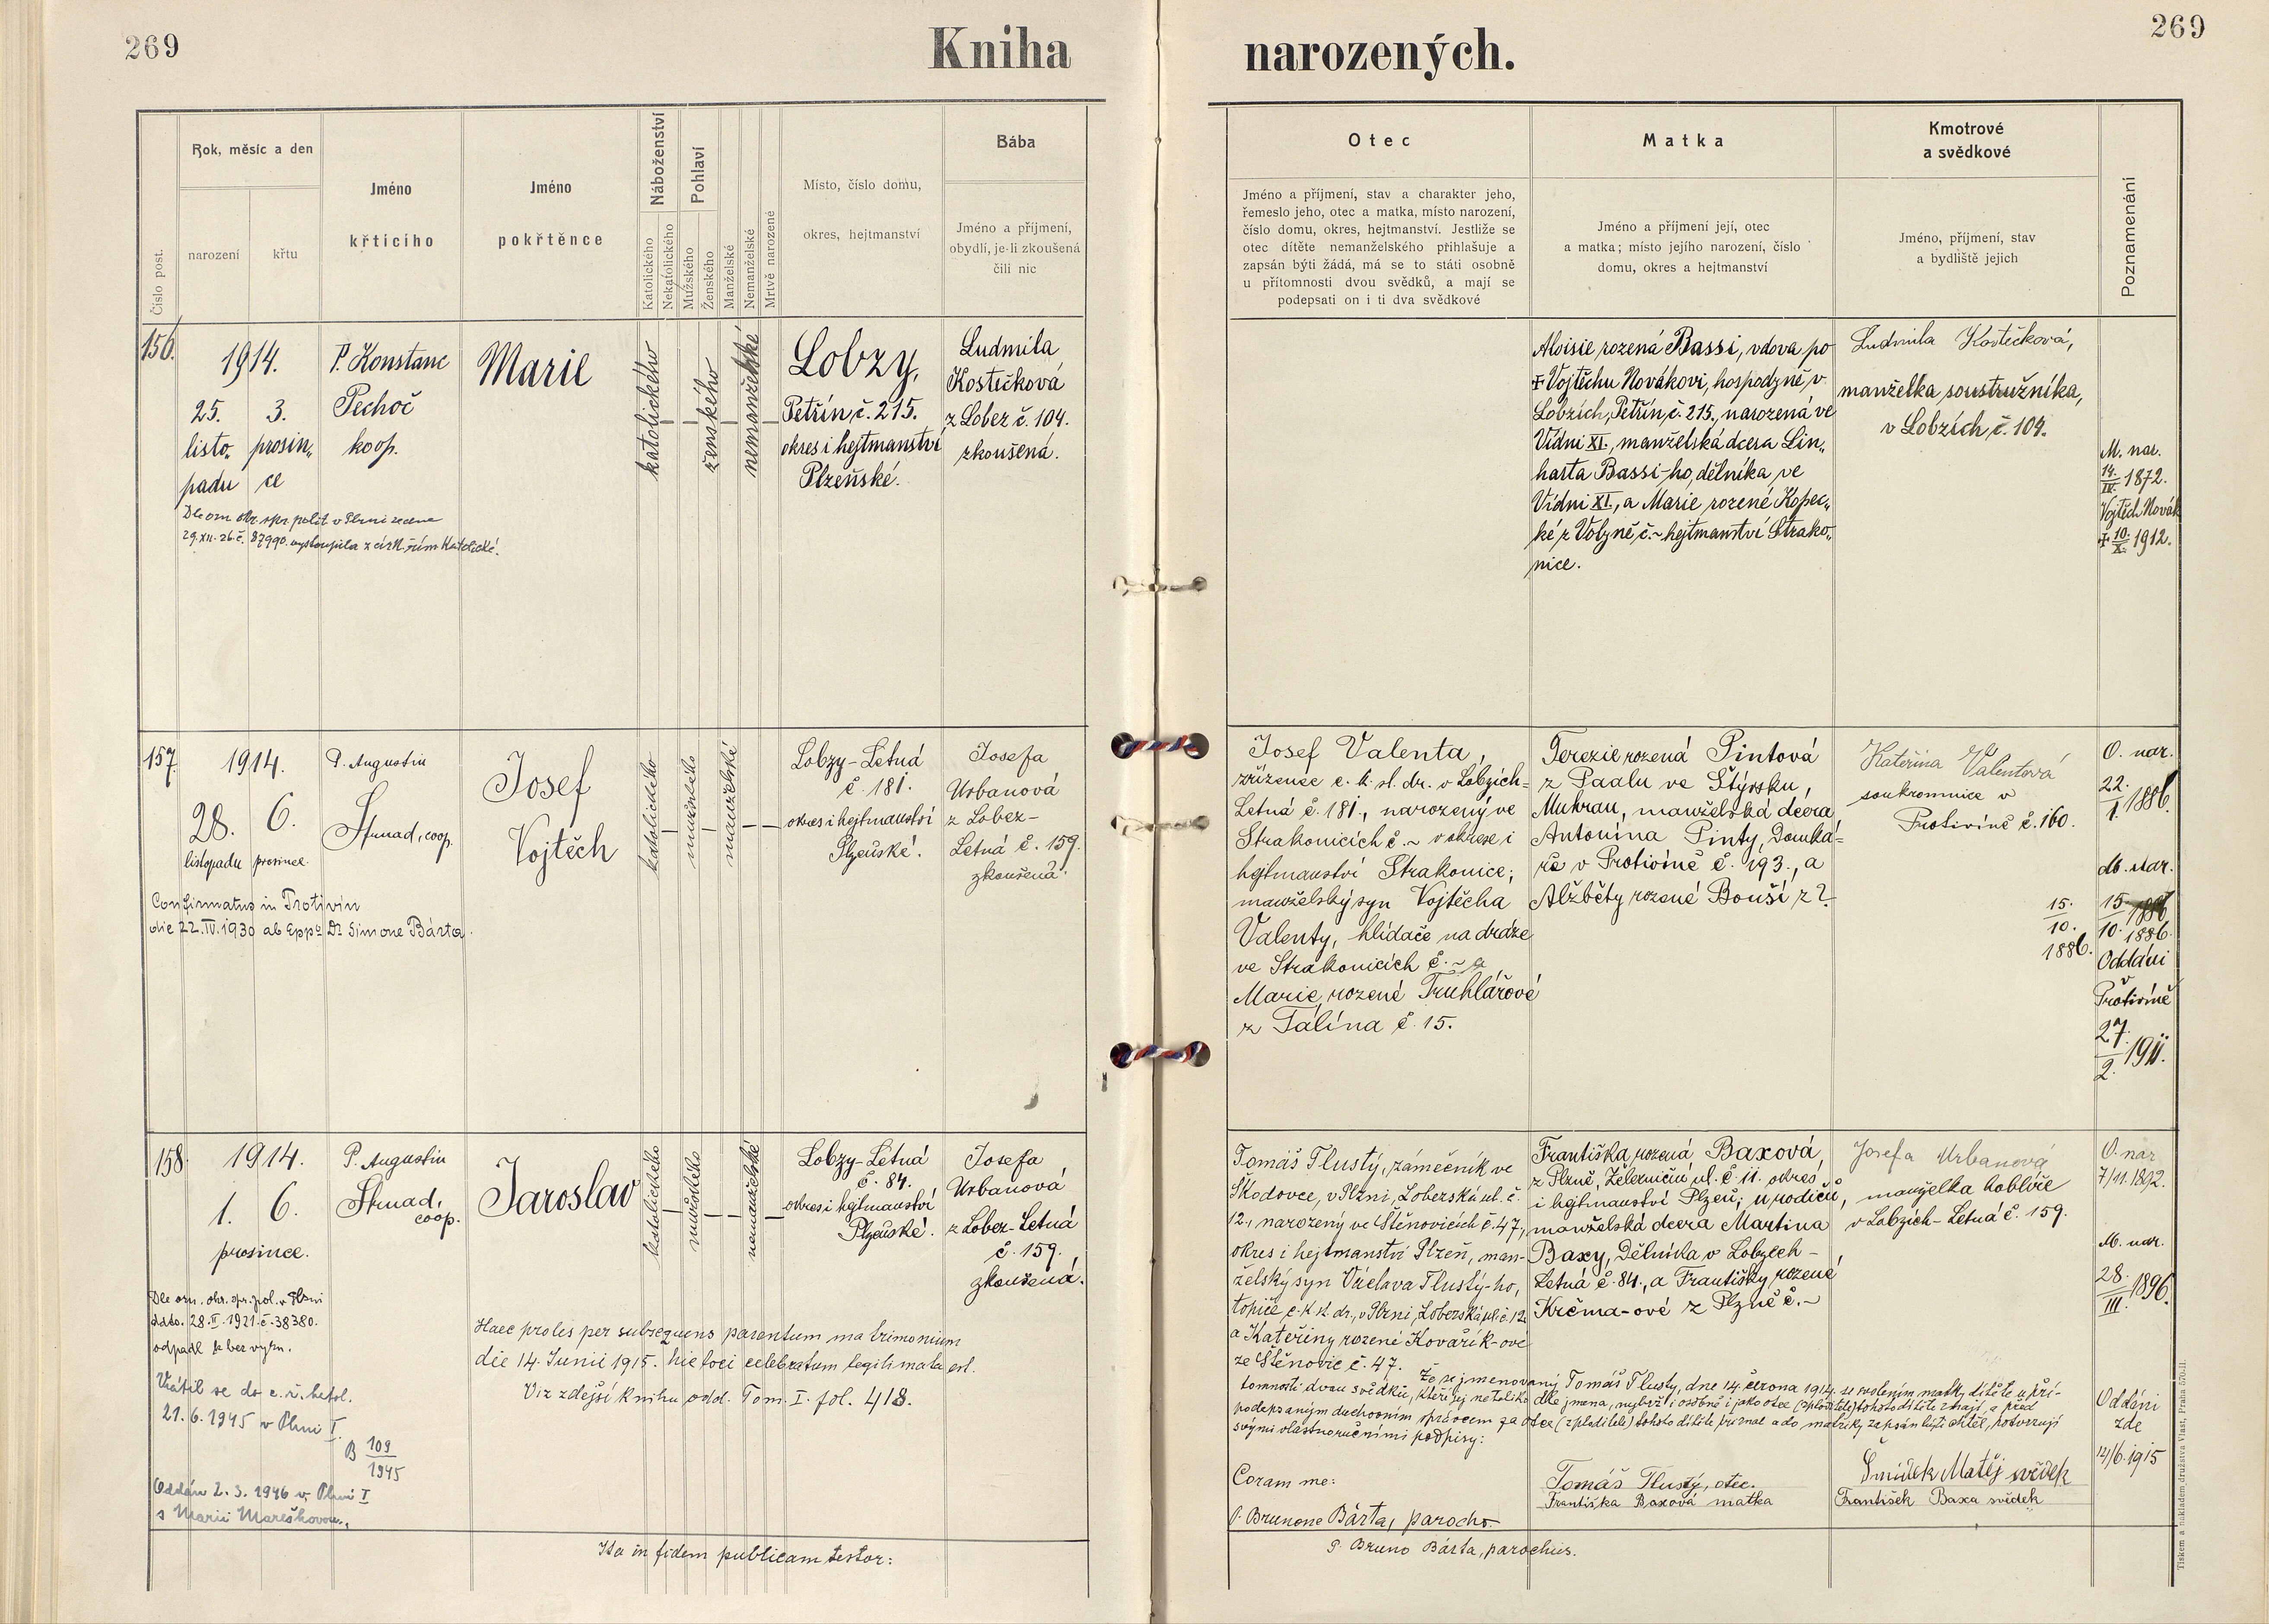 269
Kniha
narozených.
269
Číslo post.
Rok, měsíc a den
narození
křtu
Jméno
křtícího
Jméno
pokřtěnce
Náboženství
Katolického
Nekatolického
Pohlaví
Mužského
Ženského
Manželské
Nemanželské
Mrtvě narozené
Místo, číslo domu,
okres, hejtmanství
Bába
Jméno a příjmení,
obydlí, je-li zkoušená
čili nic
Otec
Jméno a příjmení, stav a charakter jeho,
řemeslo jeho, otec a matka, místo narození,
číslo domu, okres, hejtmanství. Jestliže se
otec dítěte nemanželského přihlašuje a
zapsán býti žádá, má se to státi osobně
u přítomnosti dvou svědků, a mají se
podepsati on i ti dva svědkové
Matka
Jméno a příjmení její, otec
a matka; místo jejího narození, číslo
domu, okres a hejtmanství
Kmotrové
a svědkové
Jméno, příjmení, stav
a bydliště jejich
Poznamenání
156.
1914.
25. 3.
listo„ prosin„
padu ce
P. Konstanc
Pechoč
koop.
Marie
katolického
ženského
nemanželské
Lobzy,
Petřín, č. 215.
okres i hejtmanství
Plzeňské.
Ludmila
Kostečková
z Lobez č. 104.
zkoušená.
Dle ozn. okr. spr. polit v Plzni ze dne
29.XII.26.č. 87990. vystoupila z círk. řím. katolické.
Aloisie rozená Bassi, vdova po
✝ Vojtěchu Novákovi, hospodyně v
Lobzích, Petřín, č. 215., narozená ve
Vídni XI., manželská dcera Lin„
harta Bassi-ho, dělníka ve
Vídni XI., a Marie rozené Kopec„
ké z Volyně, č.~ hejtmanství Strako„
nice.
Ludmila Kostečková,
manželka soustružníka,
v Lobzích, č. 104.
M. nar.
14./IV. 1872.
Vojtěch Novák
✝ 10./X. 1912.
157.
1914.
28. 6.
listopadu prosince.
P. Augustin
Strnad, coop.
Josef
Vojtěch
katolického
mužského
manželské
Lobzy-Letná
č. 181.
okres i hejtmanství
Plzeňské.
Josefa
Urbanová
z Lobez-
Letná č. 159.
zkoušená.
Confirmatus in Protivín
die 22.IV.1930 ab Eppo Dr. Simone Bárta.
Josef Valenta,
zřízenec c. k. st. dr. v Lobzích-
Letná č. 181., narozený ve
Strakonicích č.~ v okrese i
hejtmanství Strakonice;
manželský syn Vojtěcha
Valenty, hlídače na dráze
ve Strakonicích č.~ a
Marie, rozené Truhlářové
z Tálína č. 15.
Terezie rozená Pintová
z Paalu ve Štýrsku,
Muhrau, manželská dcera
Antonína Pinty, Domká-
ře v Protivíně č. 193., a
Alžběty rozené Bouší z ?
Kateřina Valentová
soukromnice v
Protivíně č. 160.
15.
10.
1886.
O. nar.
22./I. 1886.
M. nar.
15. 1886
10. 1886.
Oddáni
v
Protivíně
27./2. 1911.
158.
1914.
1. 6.
prosince.
P. Augustin
Strnad,
coop.
Jaroslav
katolického
mužského
nemanželské
Lobzy-Letná
č. 84.
okres i hejtmanství
Plzeňské.
Josefa
Urbanová
z Lobez-Letná
č. 159.
zkoušená.
Dle ozn. okr. spr. pol. v Plzni
ddto. 28.II.1921.č.38380.
odpadl k bez vyzn.
Vrátil se do c. ř. katol.
21.6.1945 v Plzni I.
B 109/1945
Oddán 2.3.1946 v Plzni I
s Marií Mareškovou.
Haec prolis per subsequens parentum matrimonium
die 14. Junii 1915. hic loci celebratum legitimata est.
Viz zdejší knihu odd. Tom. I. fol. 418.
Tomáš Tlustý, zámečník ve
Škodovce, v Plzni, Loberská ul. č.
12., narozený ve Štěnovicích č. 47,
okres i hejtmanství Plzeň, man-
želský syn Václava Tlustý-ho,
topiče c. k. st. dr., v Plzni, Loberská ul. č. 12.
a Kateřiny rozené Kovařík-ové
ze Štěnovic č. 47.
Františka rozená Baxová,
z Plzně, Železniční ul. č 11. okres
i hejtmanství Plzeň; u rodičů,
manželská dcera Martina
Baxy, Dělníka v Lobzech-
Letná č. 84., a Františky rozené
Krčma-ové z Plzně č.~
Josefa Urbanová
manželka
v Lobzích-Letná č. 159.
O. nar
7/11. 1892.
M. nar.
28./III. 1896.
Oddáni
zde
14/6. 1915
Že se jmenovaný Tomáš Tlustý, dne 14. června 1914. se svolením matky dítěte u pří-
tomnosti dvou svědků, kteří jej netoliko dle jména, nýbrž i osobně i jako otce (zploditele) tohoto dítěte znají, a před
podepsaným duchovním správcem za otce (zploditele) tohoto dítěte přiznal a do matriky zapsán býti chtěl, potvrzují
svými vlastnoručními podpisy:
Coram me:
P. Brunone Bárta, parocho.
Tomáš Tlustý, otec.
Františka Baxová matka
Šmídek Matěj svědek
František Baxa svědek
Ita in fidem publicam testor:
P. Bruno Bárta, parochus.
Tiskem a nákladem družstva Vlast, Praha 570-II.